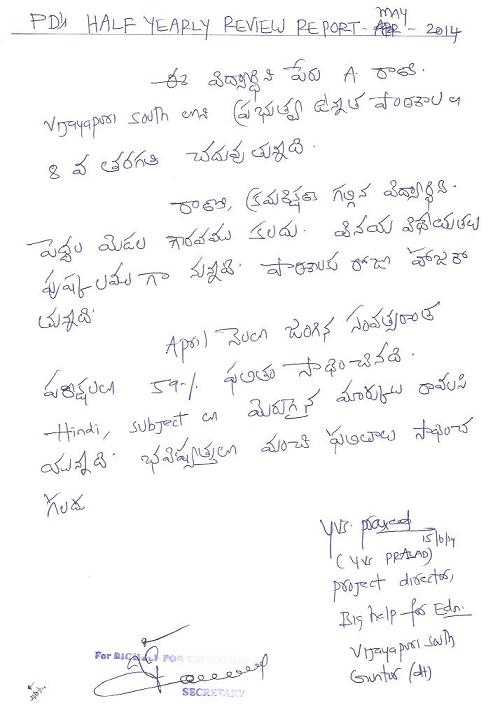 PD's HALF YEARLY REVIEW REPORT - MAY - 2014
ఈ విద్యార్థిని పేరు A. రాణి.
Vijayapuri South లోని ప్రభుత్వ ఉన్నత పాఠశాల లో
8 వ తరగతి చదువుతున్నది.
రాణి, క్రమశిక్షణ గల్గిన విద్యార్థిని.
పెద్దల యెడల గౌరవము కలదు. వినయ విధేయతలు
పుష్కలము గా నున్నవి. పాఠశాలకు రోజూ హాజరౌ
తున్నది.
April నెలలో జరిగిన సంవత్సరాంత
పరీక్షలలో 59% ఫలితం సాధించినది.
Hindi, subject లో మెరుగైన మార్కులు రావలసి
యున్నది. భవిష్యత్తులో మంచి ఫలితాలు సాధించ
గలదు
YVS. prasad
15/6/14
(YVS PRASAD)
project director,
Big help for Edn.
Vijayapuri South
Guntur (dt)
For BIGHELP FOR EDUCATION
SECRETARY